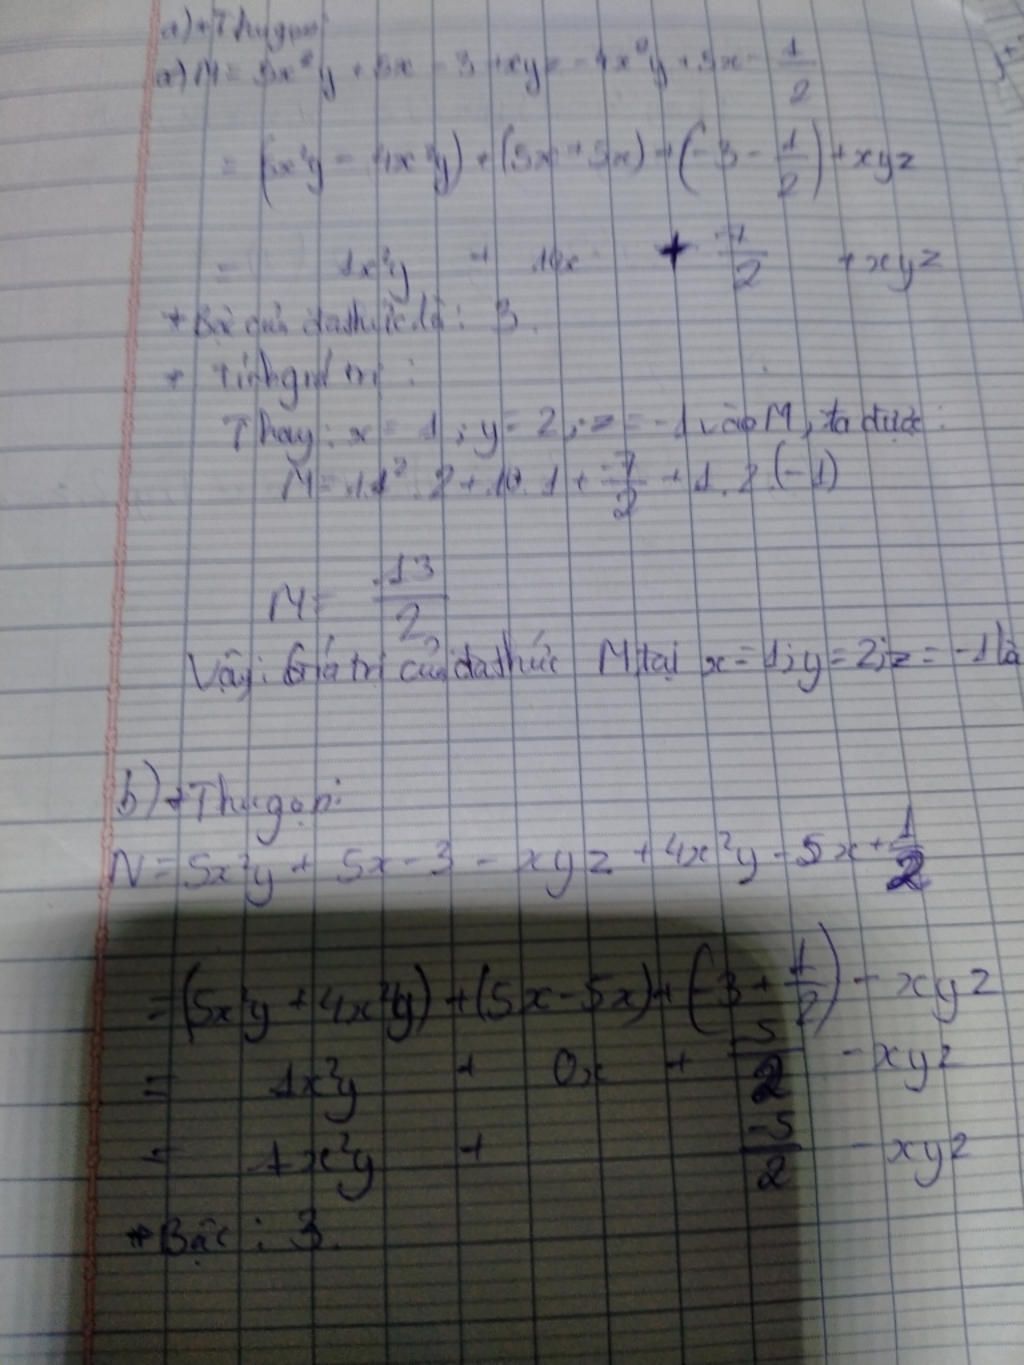 a) + Thu gọn:
a) M = 5x²y + 5x - 3 + xyz - 4x²y + 5x - 1/2
= (5x²y - 4x²y) + (5x + 5x) + (-3 - 1/2) + xyz
= 1x²y + 10x + -7/2 + xyz
+ Bậc của đa thức là: 3.
+ Tính giá trị:
Thay: x = 1; y = 2; z = -1 vào M, ta được:
M = 1.1².2 + 10.1 + -7/2 + 1.2.(-1)
M = 13/2
Vậy: Giá trị của đa thức M tại x = 1; y = 2; z = -1 là
b) + Thu gọn:
N = 5x²y + 5x - 3 - xyz + 4x²y - 5x + 1/2
= (5x²y + 4x²y) + (5x - 5x) + (-3 + 1/2) - xyz
= 1x²y + 0x + -5/2 - xyz
= 1x²y + -5/2 - xyz
+ Bậc: 3.